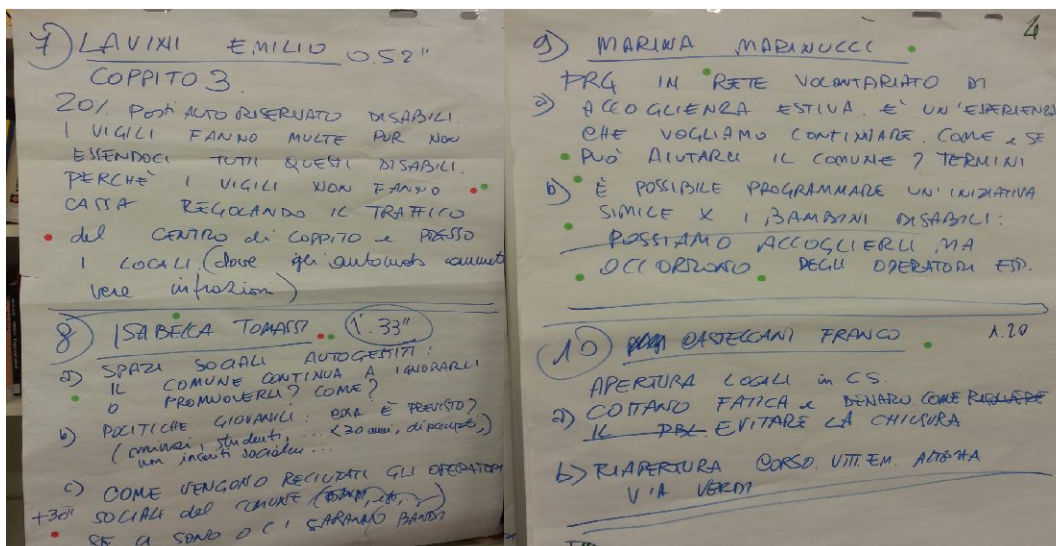 7) LAVINI EMILIO 0.52"
COPPITO 3
20% Posti AUTO RISERVATO DISABILI.
I VIGILI FANNO MULTE PUR NON
ESSENDOCI TUTTI QUESTI DISABILI.
PERCHÈ I VIGILI NON FANNO
CASSA REGOLANDO IL TRAFFICO
del CENTRO di COPPITO e PRESSO
I LOCALI (dove gli automob
vere infrazioni)
8) ISABELLA TOMASSI 1'.33"
a) SPAZI SOCIALI AUTOGESTITI:
IL COMUNE CONTINUA A IGNORARLI
O PROMUOVERLI? COME?
b) POLITICHE GIOVANILI: COSA È PREVISTO?
(minori, studenti, ... <30 anni, disoccupati,)
non inseriti socialm...
c) COME VENGONO RECLUTATI GLI OPERATORI
+30" SOCIALI del COMUNE
SE CI SONO O CI SARANNO BANDI
4
9) MARINA MARINUCCI
PRG IN RETE VOLONTARIATO DI
a) ACCOGLIENZA ESTIVA. E' UN'ESPERIENZA
CHE VOGLIAMO CONTINUARE. COME e SE
PUÒ AIUTARCI IL COMUNE? TERMINI
b) È POSSIBILE PROGRAMMARE UN'INIZIATIVA
SIMILE X I BAMBINI DISABILI:
POSSIAMO ACCOGLIERLI MA
OCCORRONO DEGLI OPERATORI ESP.
10) CASTELLANI FRANCO 1.20
APERTURA LOCALI in C.S.
a) COSTANO FATICA e DENARO. COME RISOLVERE
IL PBL. EVITARE LA CHIUSURA
b) RIAPERTURA CORSO. VITT. EM. ALTEZZA
VIA VERDI